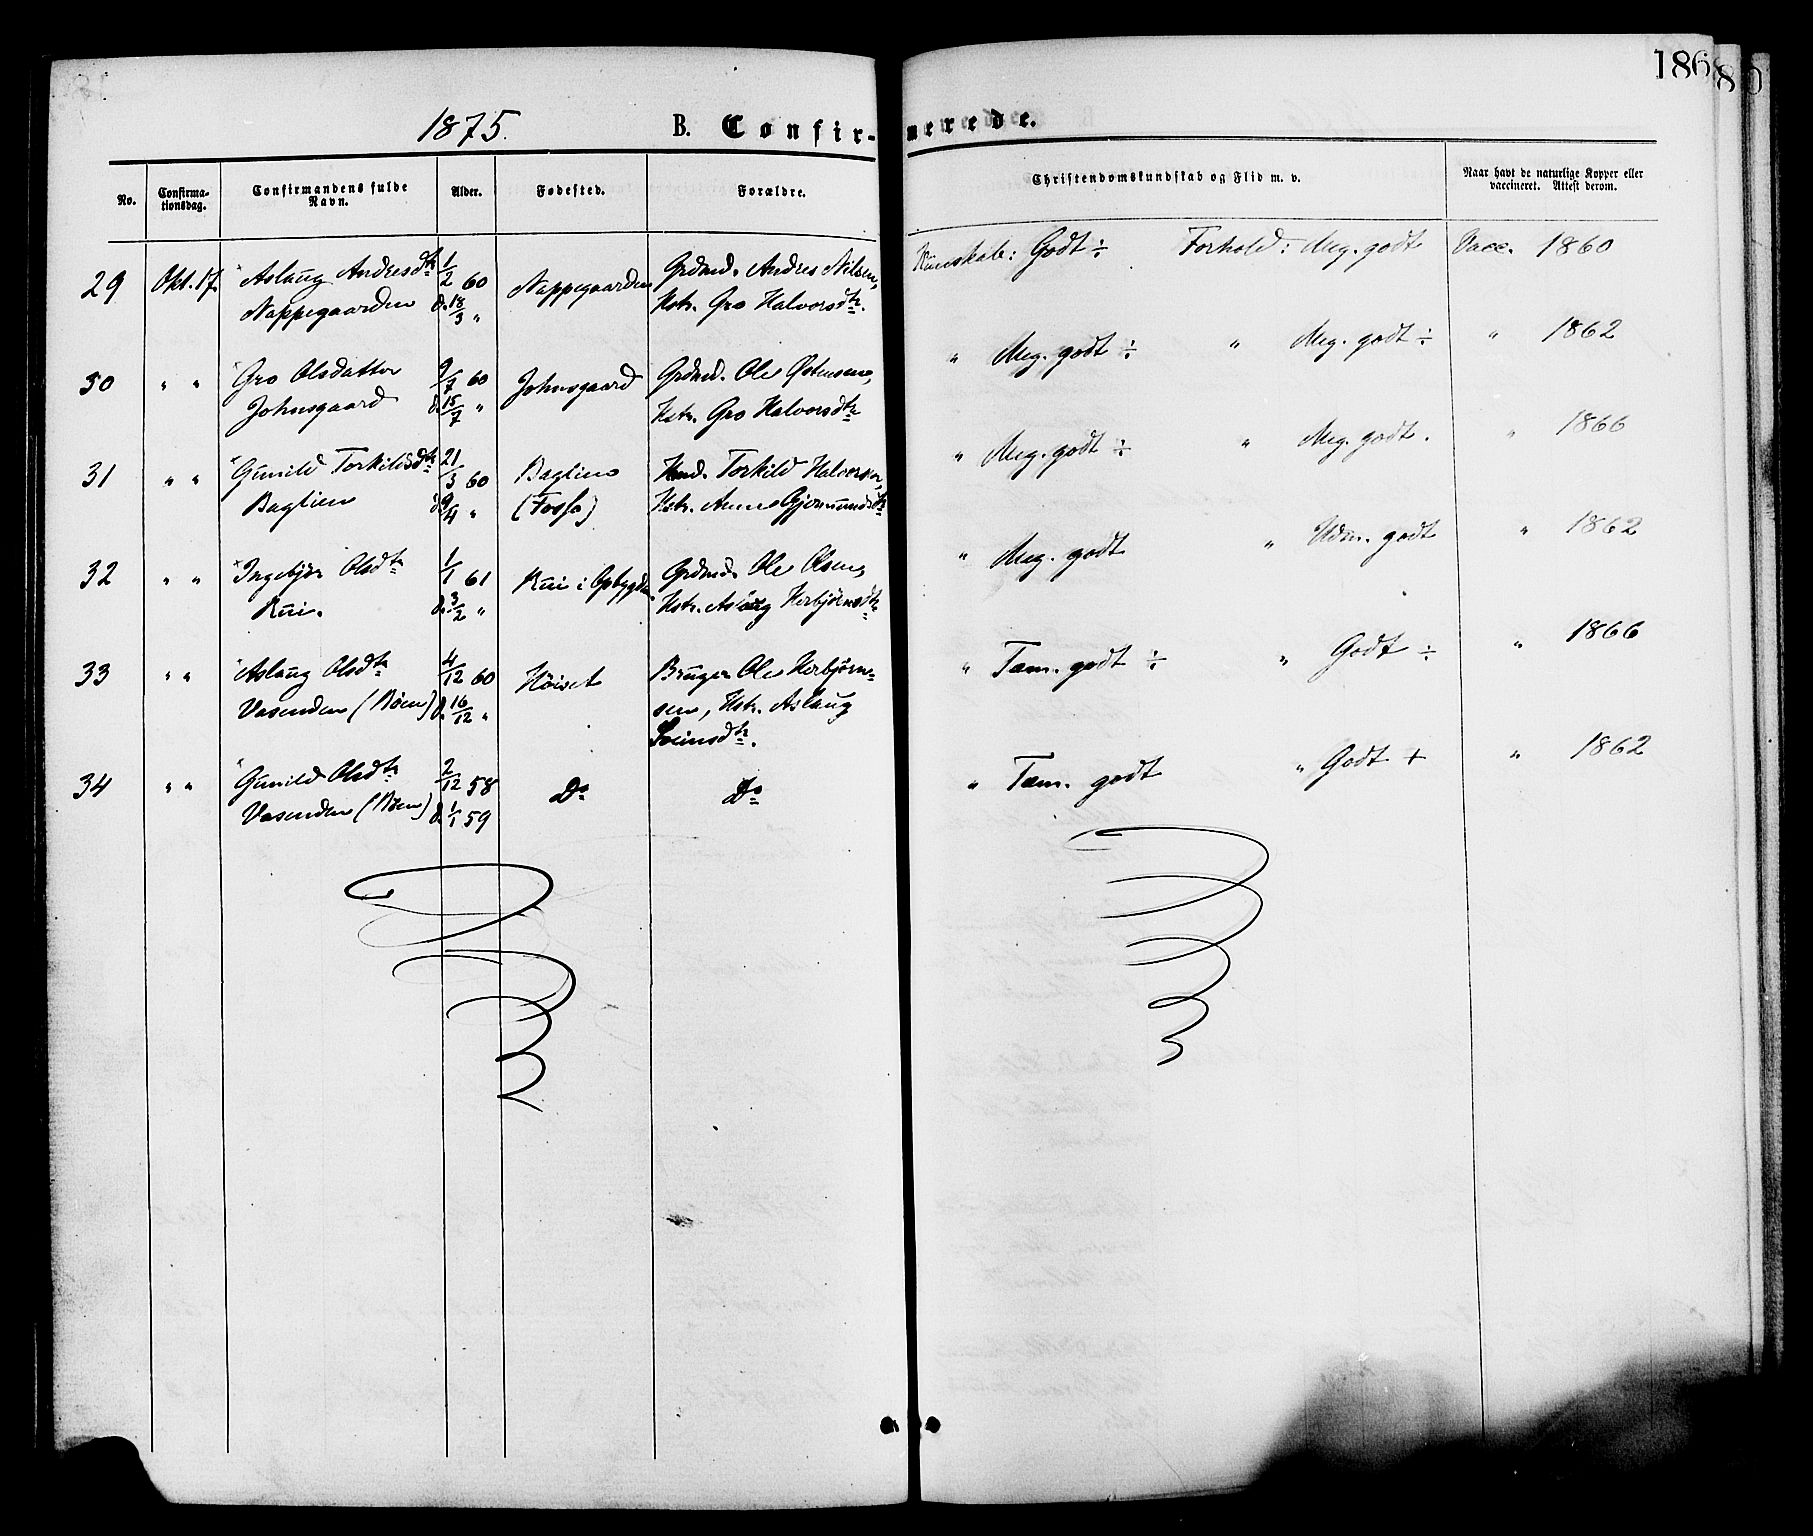 186
80
1875.
B. Confir-
merede.
No.
Confirma-
tionsdag.
Confirmandens fulde
Navn.
Alder.
Fødested.
Forældre.
Christendomskundskab og Flid m. v.
Naar havt de naturlige Kopper eller
vaccineret. Attest derom.
29 Okt. 17. Aslaug Andresdtr 1/2 60 Nappegaarden Grdmd. Andres Nilsen, Kunskab: Godt ÷ Forhold: Meg. godt Vacc. 1860
Nappegaarden d. 18/3 " Hstr. Gro Halvorsdtr.
30 " " Gro Olsdatter 9/7 60 Johnsgaard Grdmd. Ole Østensen, " Meg. godt ÷ " Meg. godt ÷ " 1862
Johnsgaard d. 15/7 " Hstr. Gro Halvorsdtr
31 " " Gunild Torkildsdtr 21/3 60 Baglien Hmd. Torkild Halvorsen, " Meg. godt ÷ " Meg. godt. " 1866
Baglien d. 9/4 " (Fosso) Hstr. Anne Gjermundsdtr
32 " " Ingebjør Olsdtr 1/1 61 Rui i Opbygden Grdmd. Ole Olsen, " Meg. godt " Udm. godt " 1862
Rui. d. 3/2 " Hstr. Aslaug Herbjørnsdtr
33 " " Aslaug Olsdtr 4/12 60 Høiset Bruger Ole Herbjørn- " Tem. godt ÷ " Godt ÷ " 1866
Vasenden (Røen) d. 16/12 " sen, Hstr. Aslaug
Sveinsdtr.
34 " " Gunild Olsdtr 2/12 58 Do Do " Tem. godt " Godt + " 1862
Vasenden (Røen) d. 1/1 59